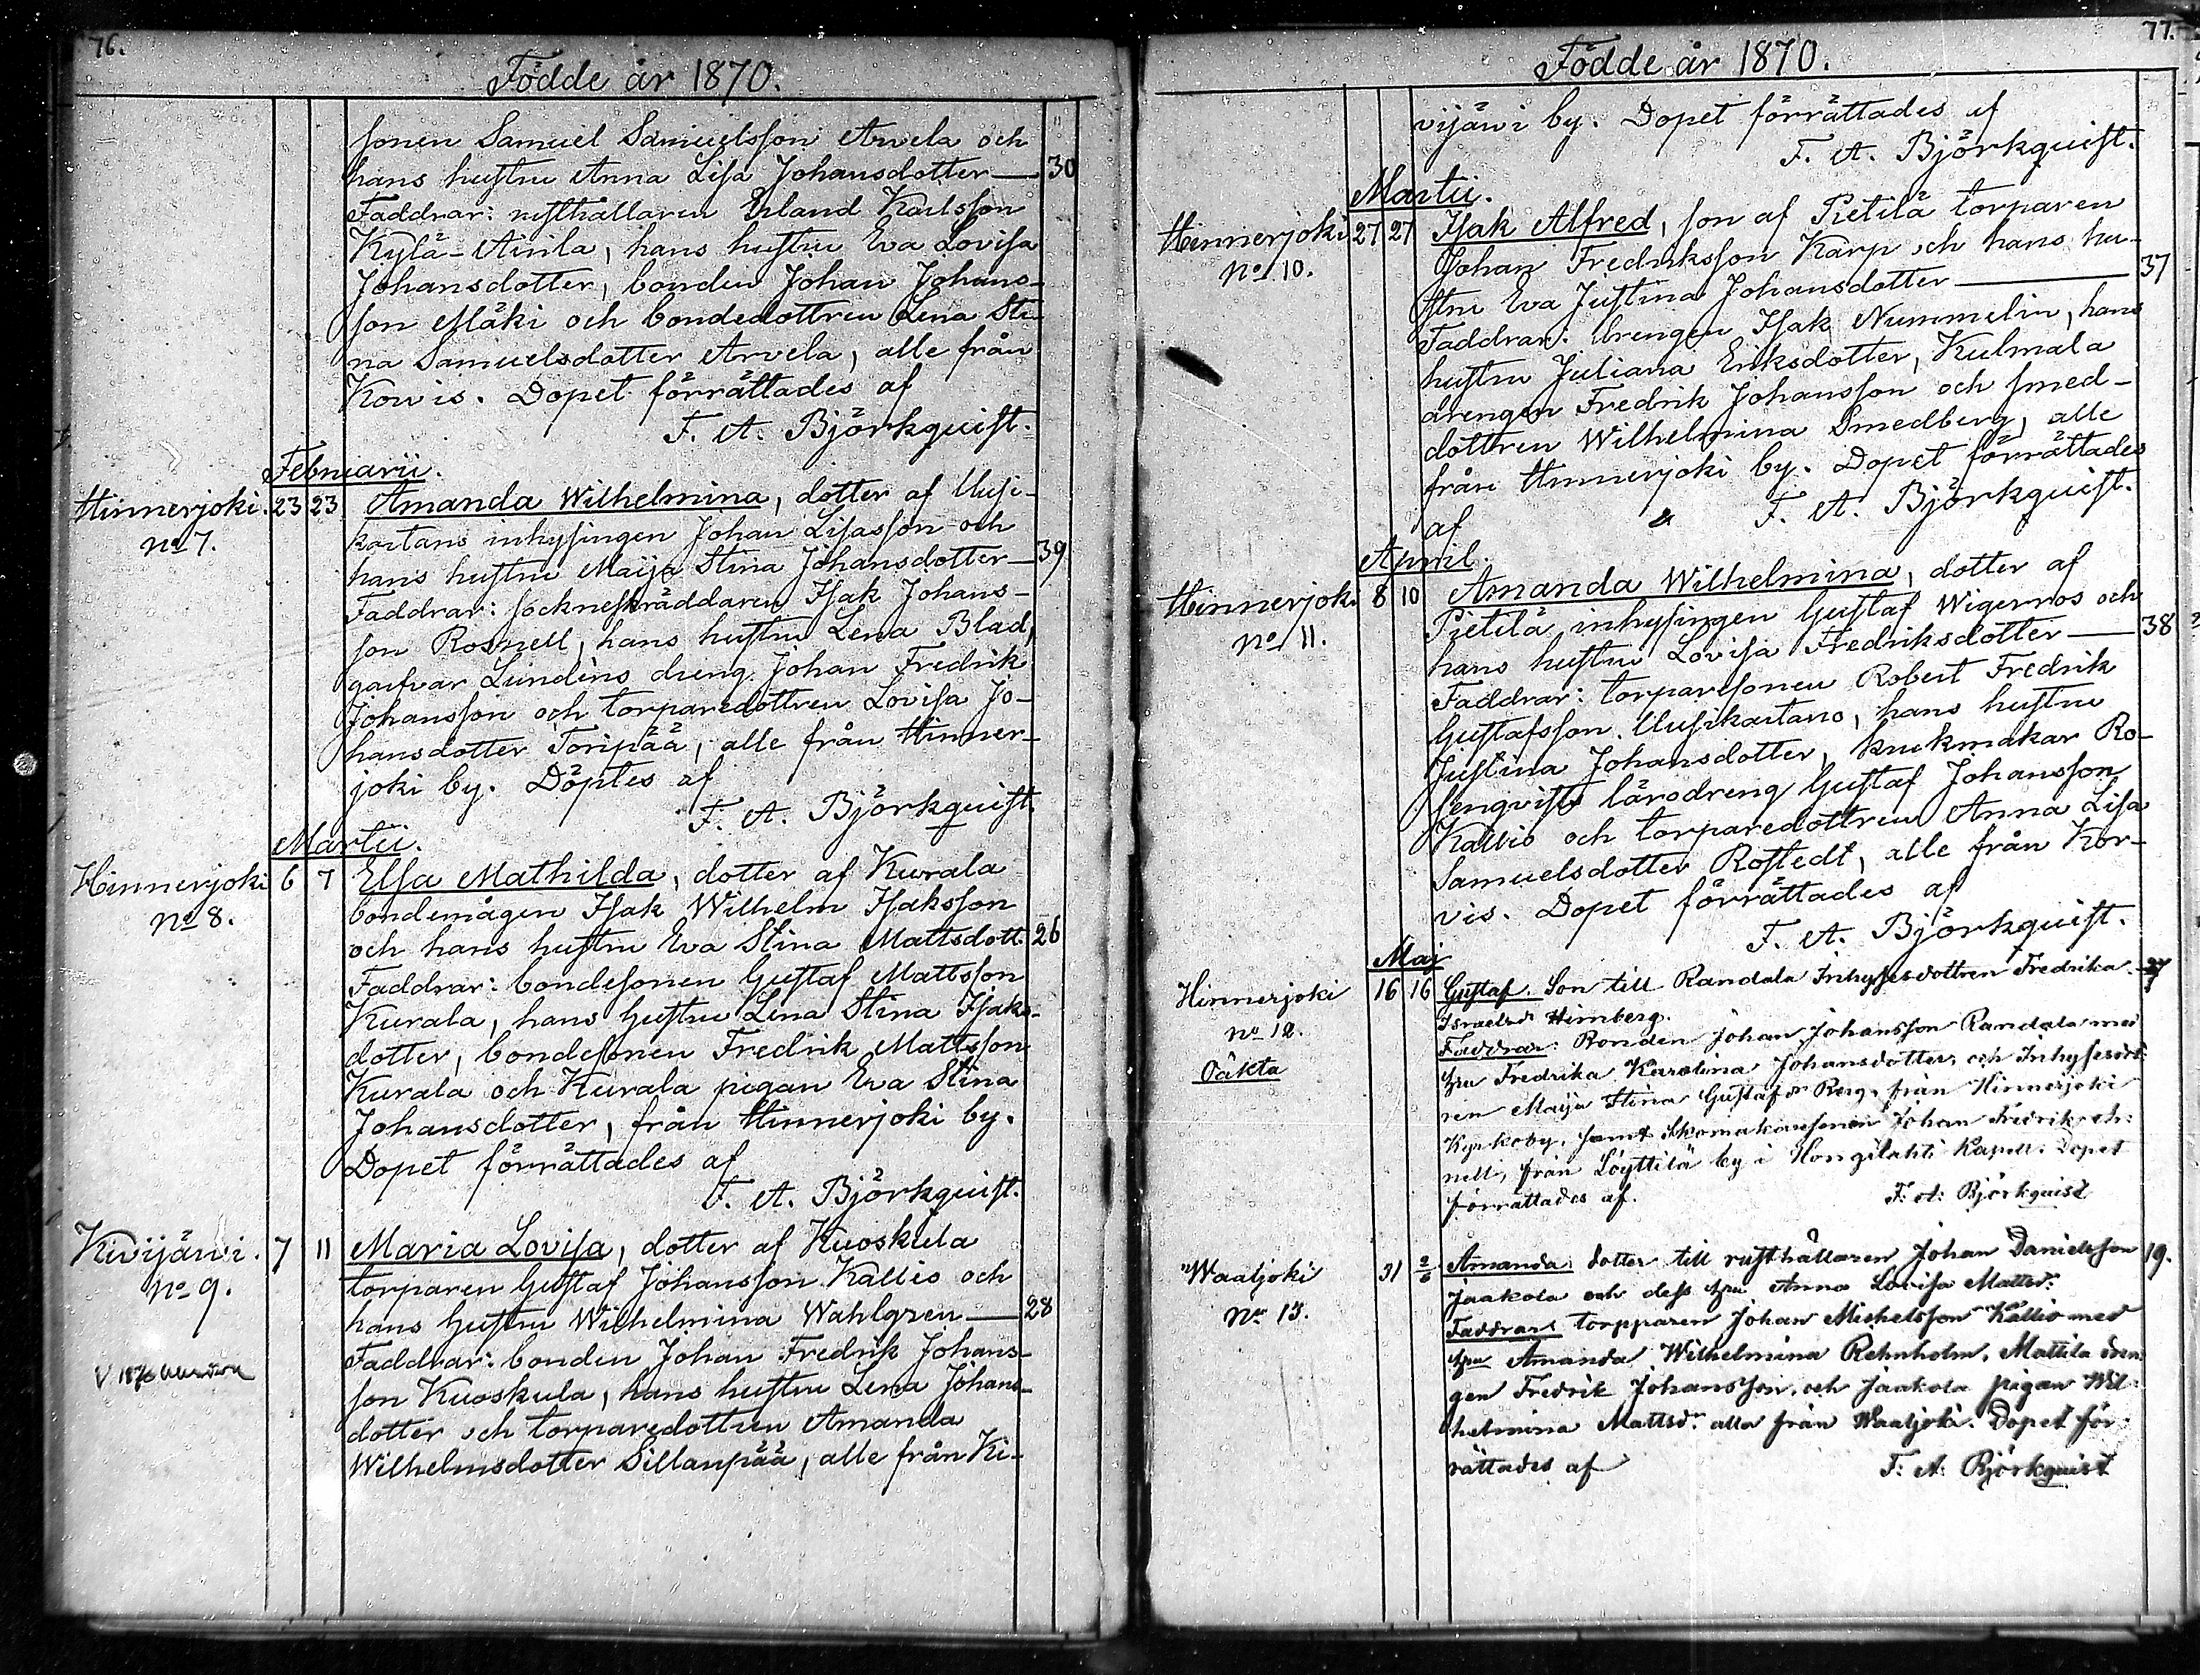 76.
Födde år 1870.
sonen Samuel Samuelsson Arvela och
hans hustru Anna Lisa Johansdotter — 30
Faddrar: rusthållaren Erland Karlsson
Kylä-Anila, hans hustru Eva Lovisa
Johansdotter, bonden Johan Johans-
son Mäki och bondedottren Lena Sti-
na Samuelsdotter Arvela, alle från
Korvis. Dopet förrättades af
F. A. Björkquist.
Februarii.
Hinnerjoki. 23 23 Amanda Wilhelmina, dotter af Uusi-
No 7. kartans inhysingen Johan Lisasson och
hans hustru Maija Stina Johansdotter — 39
Faddrar: sockneskräddaren Isak Johans-
son Rosnell, hans hustru Lena Blad,
garfvar Lundéns dreng Johan Fredrik
Johansson och torparedottren Lovisa Jo-
hansdotter Toripää, alle från Hinner-
joki by. Döptes af
F. A. Björkquist.
Martii.
Hinnerjoki 6 7 Elsa Mathilda, dotter af Kurala
No 8. bondemågen Isak Wilhelm Isaksson
och hans hustru Eva Stina Mattsdott. 26
Faddrar: bondesonen Gustaf Mattsson
Kurala, hans hustru Lena Stina Isaks-
dotter, bondesonen Fredrik Mattsson
Kurala och Kurala pigan Eva Stina
Johansdotter, från Hinnerjoki by.
Dopet förrättades af
F. A. Björkquist.
Kivijärvi. 7 11 Maria Lovisa, dotter af Kuoskula
No 9. torparen Gustaf Johansson Kallio och
hans hustru Wilhelmina Wahlgren — 28
Faddrar: bonden Johan Fredrik Johans-
son Kuoskula, hans hustru Lena Johans-
dotter och torparedottren Amanda
Wilhelmsdotter Sillanpää, alle från Ki-
77.
Födde år 1870.
vijärvi by. Dopet förrättades af
F. A. Björkquist.
Martii.
Hinnerjoki 27 27 Isak Alfred, son af Pietilä torparen
No 10. Johan Fredriksson Karp och hans hu-
stru Eva Justina Johansdotter — 37
Faddrar: drengen Isak Nummelin, hans
hustru Juliana Eriksdotter, Kulmala
drengen Fredrik Johansson och smed-
dottren Wilhelmina Smedberg, alle
från Hinnerjoki by. Dopet förrättades
af F. A. Björkquist.
April.
Hinnerjoki 8 10 Amanda Wilhelmina, dotter af
No 11. Pietilä inhysingen Gustaf Wigerros och
hans hustru Lovisa Fredriksdotter — 38
Faddrar: torparesonen Robert Fredrik
Gustafsson Uusikartano, hans hustru
Justina Johansdotter, krukmakar Ro-
senqvists lärodreng Gustaf Johansson
Kallio och torparedottren Anna Lisa
Samuelsdotter Rostedt, alle från Kor-
vis. Dopet förrättades af
F. A. Björkquist.
Maj
Hinnerjoki 16 16 Gustaf. Son till Randala Inhysesdottren Fredrika 27
No 12. Israelsdr Himberg.
Oäkta Faddrar: Bonden Johan Johansson Randala med
hru Fredrika Karolina Johansdotter, och Inhysesdot-
ren Maija Stina Gustafsdr Berg, från Hinnerjoki
Kyrkoby, samt Skomakaresonen Johan Fredrik
nell, från Löyttilä by i Hongilahti Kapell. Dopet
förrättades af. F: A: Björkquist
Waaljoki 31 2/6 Amanda, dotter till rusthållaren Johan Danielsson 19.
No 13. Jaakola och dess hru Anna Lovisa Mattsdr
Faddrar: torpparen Johan Michelsson Kallio med
hru Amanda Wilhelmina Rehnholm, Mattila dren
gen Fredrik Johansson, och Jaakola pigan Wil-
helmina Mattsdr alla från Waaljoki. Dopet för-
rättades af F: A: Björkquist